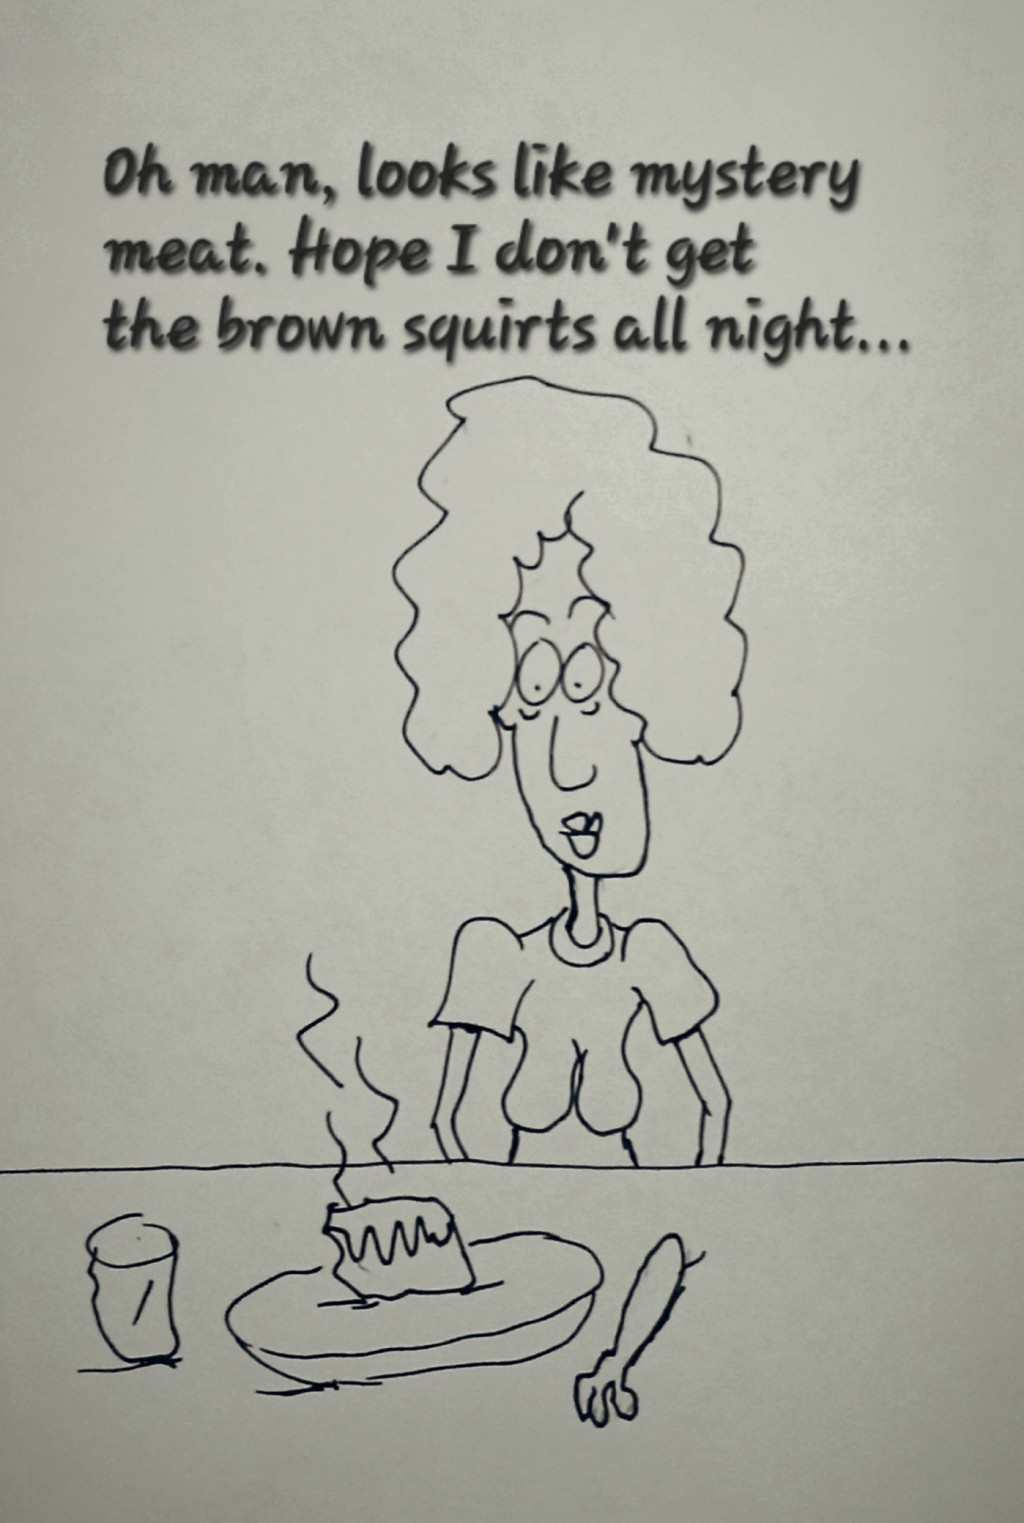 Oh man, looks like mystery
meat. Hope I don't get
the brown squirts all night...